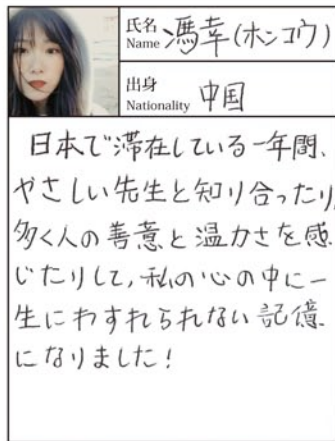 氏名
Name 馮幸(ホンコウ)
出身
Nationality 中国
日本で滞在している一年間、
やさしい先生と知り合ったり、
多く人の善意と温かさを感
じたりして、私の心の中に一
生にわすれられない記憶
になりました!